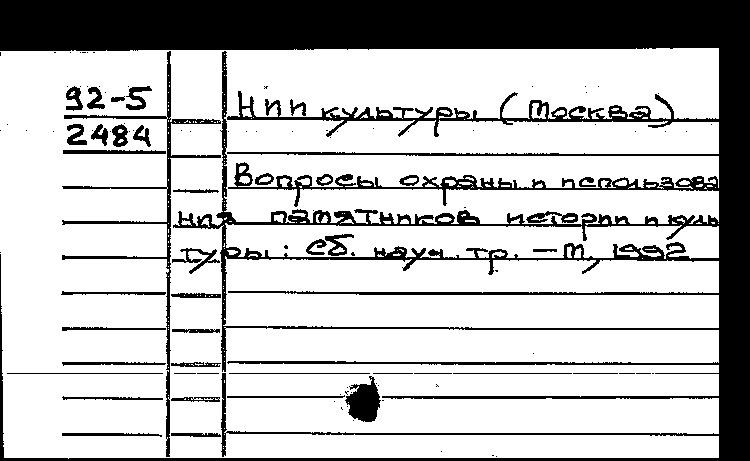 92-5
2484
НИИ культуры (Москва)
Вопросы охраны и использова
ния памятников истории и куль
туры: Сб. науч. тр. - М, 1992